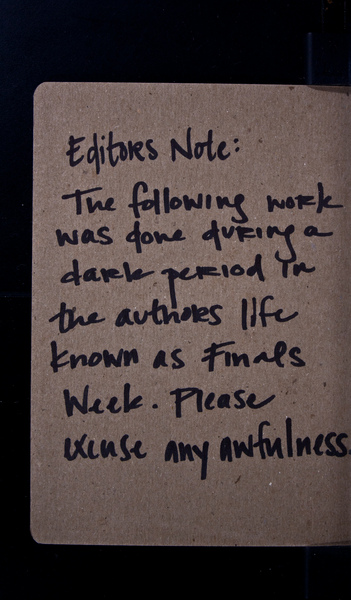 Editors Note:
The following work
was done during a
dark period in
the authors life
known as Finals
Week. Please
excuse any awfulness.